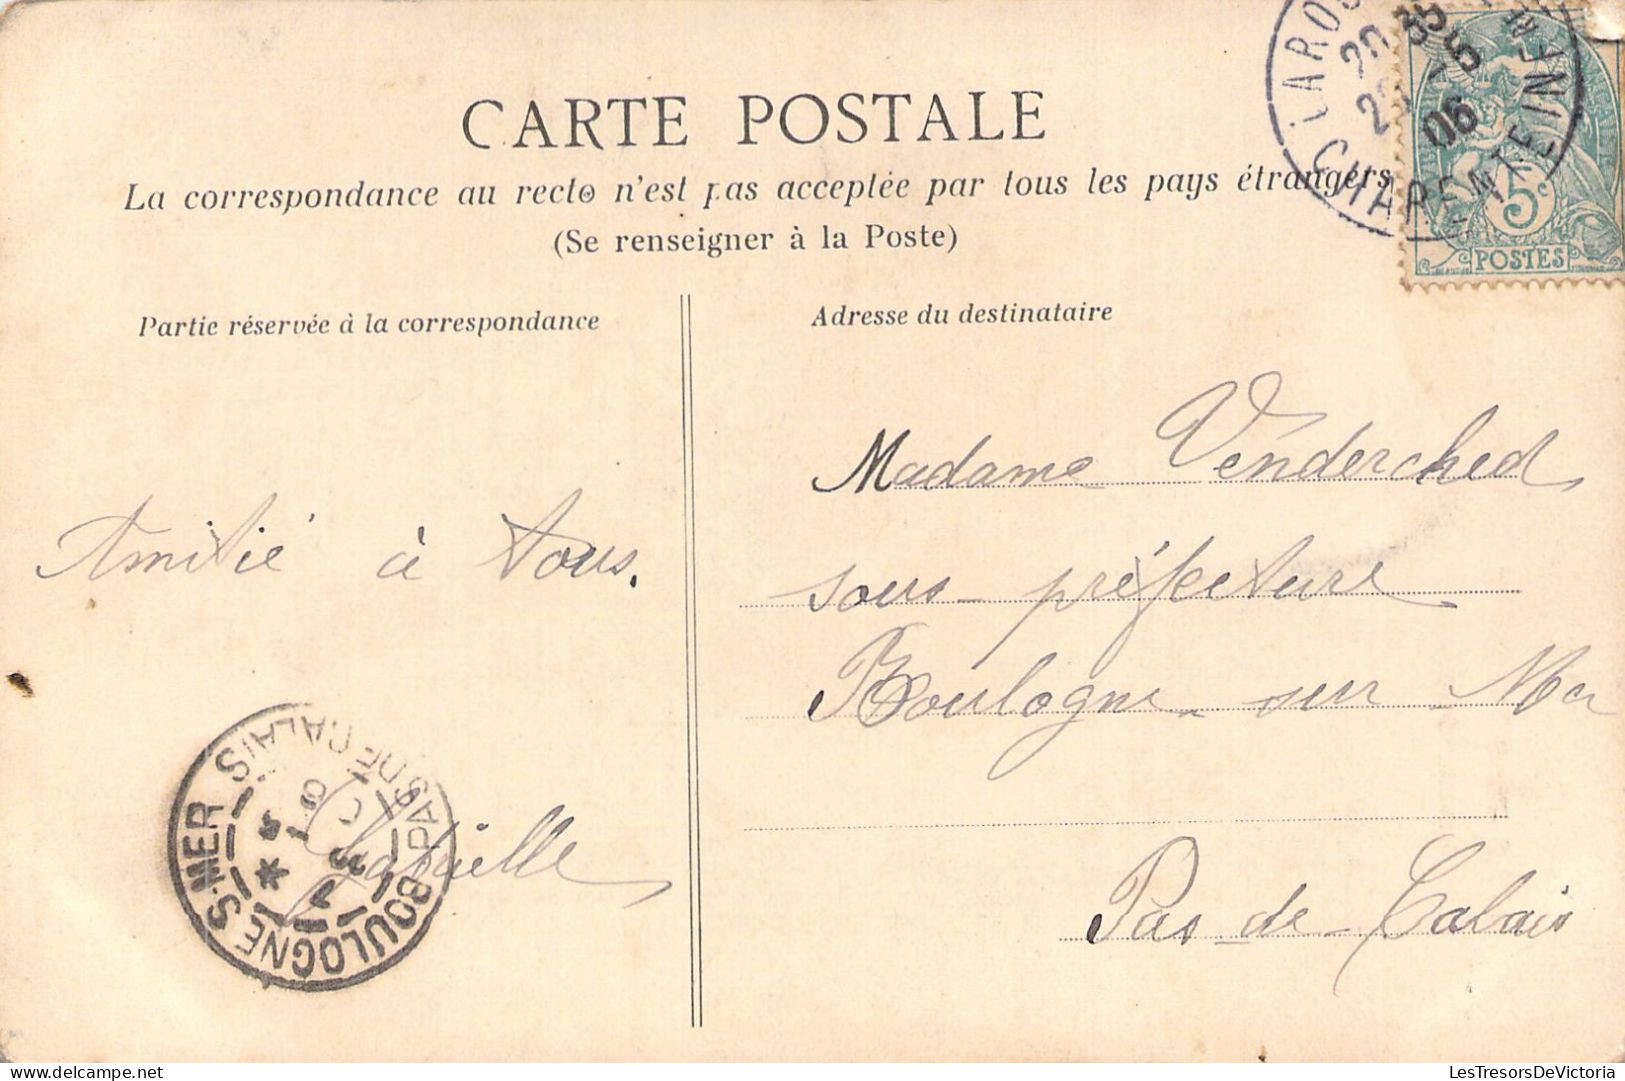 CARTE POSTALE
La correspondance au recto n'est pas acceptée par tous les pays étrangers
(Se renseigner à la Poste)
Partie réservée à la correspondance
Adresse du destinataire
CHARENTE INF
06
5c
POSTES
Amitié à tous.
Gabrielle
Madame Venderched
sous-préfecture
Boulogne-sur-Mer
Pas-de-Calais
BOULOGNE S-MER
PAS DE CALAIS
LesTresorsDeVictoria